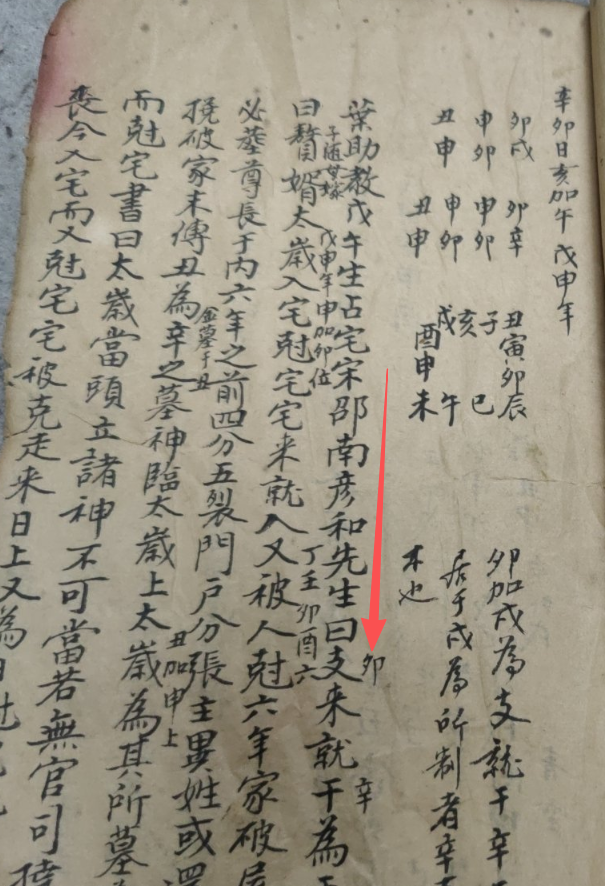 辛卯日亥加午 戊申年
卯戌 卯辛 丑寅卯辰
申卯 申卯 子 巳
丑申 申卯 亥 午
丑申 戌 酉申未
卯加戌為支就干辛
居于戌為所制者辛
木也
卯 辛
葉助教戊午生占宅宋邵南彥和先生曰支来就干為
子随母嫁 戊申年申加卯位 丁壬卯酉六
曰贅婿太歲入宅尅宅宅来就人又被人尅六年家破
必塟尊長于内六年之前四分五裂門户分張主異姓或
金墓于丑 丑加申上
攙破家末傳丑為辛之墓神臨太歲上太歲為其所墓
而尅宅書曰太歲當頭立諸神不可當若無官司
喪今入宅而又尅宅宅被克走来日上又為日尅